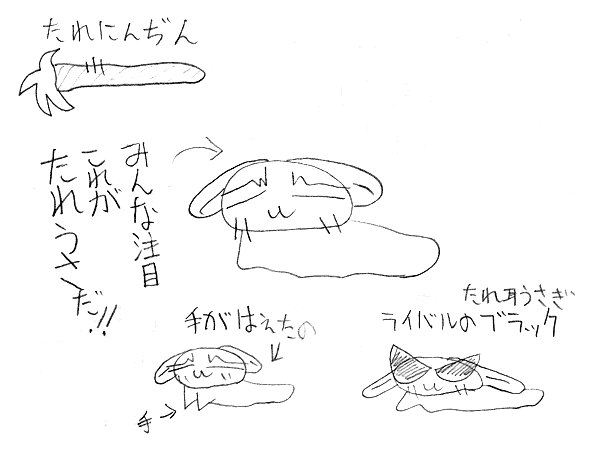 たれにんぢん
みんな注目
これが
たれうさだ!!
手がはえたの
手
たれ耳うさぎ
ライバルのブラック